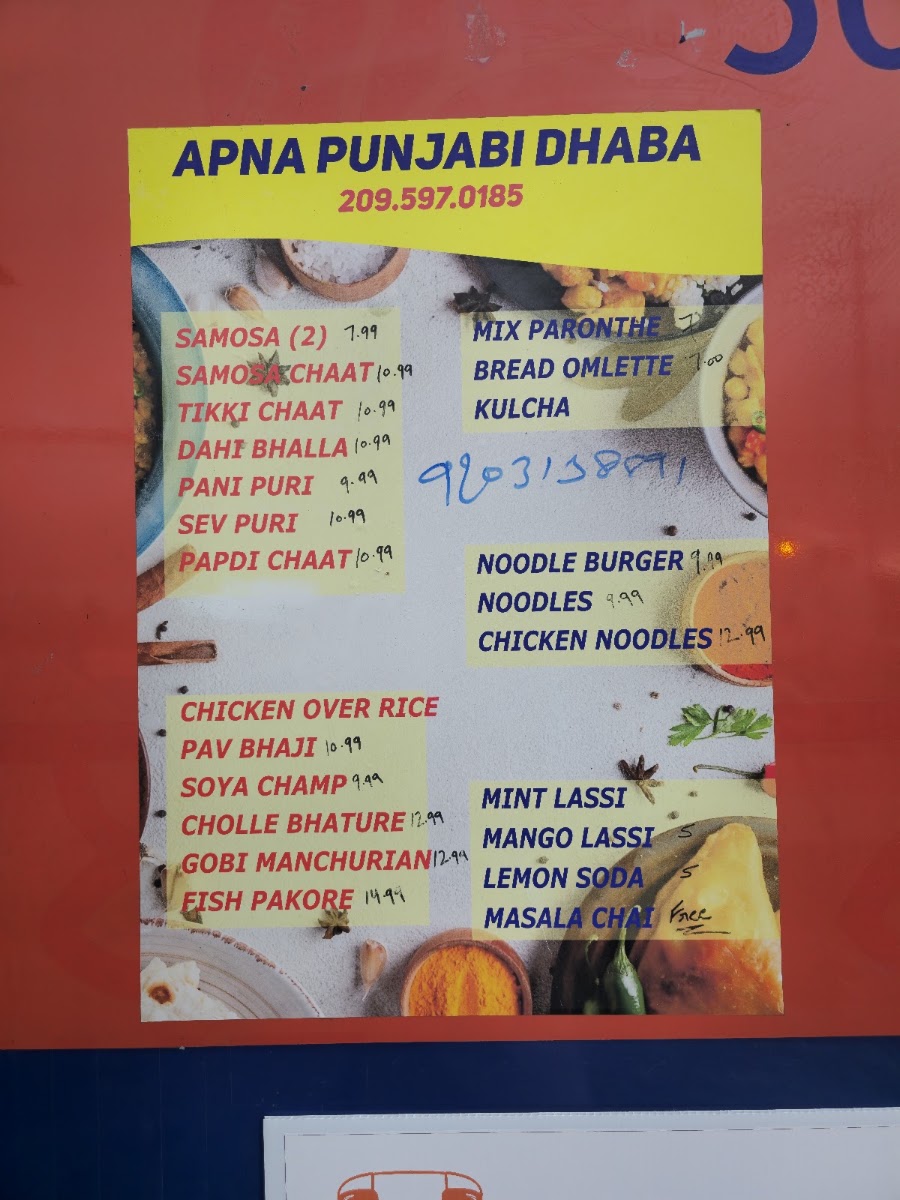 APNA PUNJABI DHABA
209.597.0185
SAMOSA (2) 7.99
SAMOSA CHAAT 10.99
TIKKI CHAAT 10.99
DAHI BHALLA 10.99
PANI PURI 9.99
SEV PURI 10.99
PAPDI CHAAT 10.99
CHICKEN OVER RICE
PAV BHAJI 10.99
SOYA CHAMP 9.99
CHOLLE BHATURE 12.99
GOBI MANCHURIAN 12.99
FISH PAKORE 14.99
MIX PARONTHE 7
BREAD OMLETTE 7.00
KULCHA
NOODLE BURGER 9.99
NOODLES 9.99
CHICKEN NOODLES 12.99
MINT LASSI
MANGO LASSI 5
LEMON SODA 5
MASALA CHAI Free